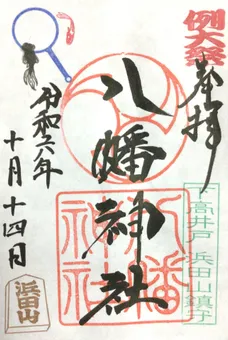 例大祭
奉拝
八幡神社
八幡神社
下高井戸 浜田山鎮守
令和六年
十月十四日
浜田山